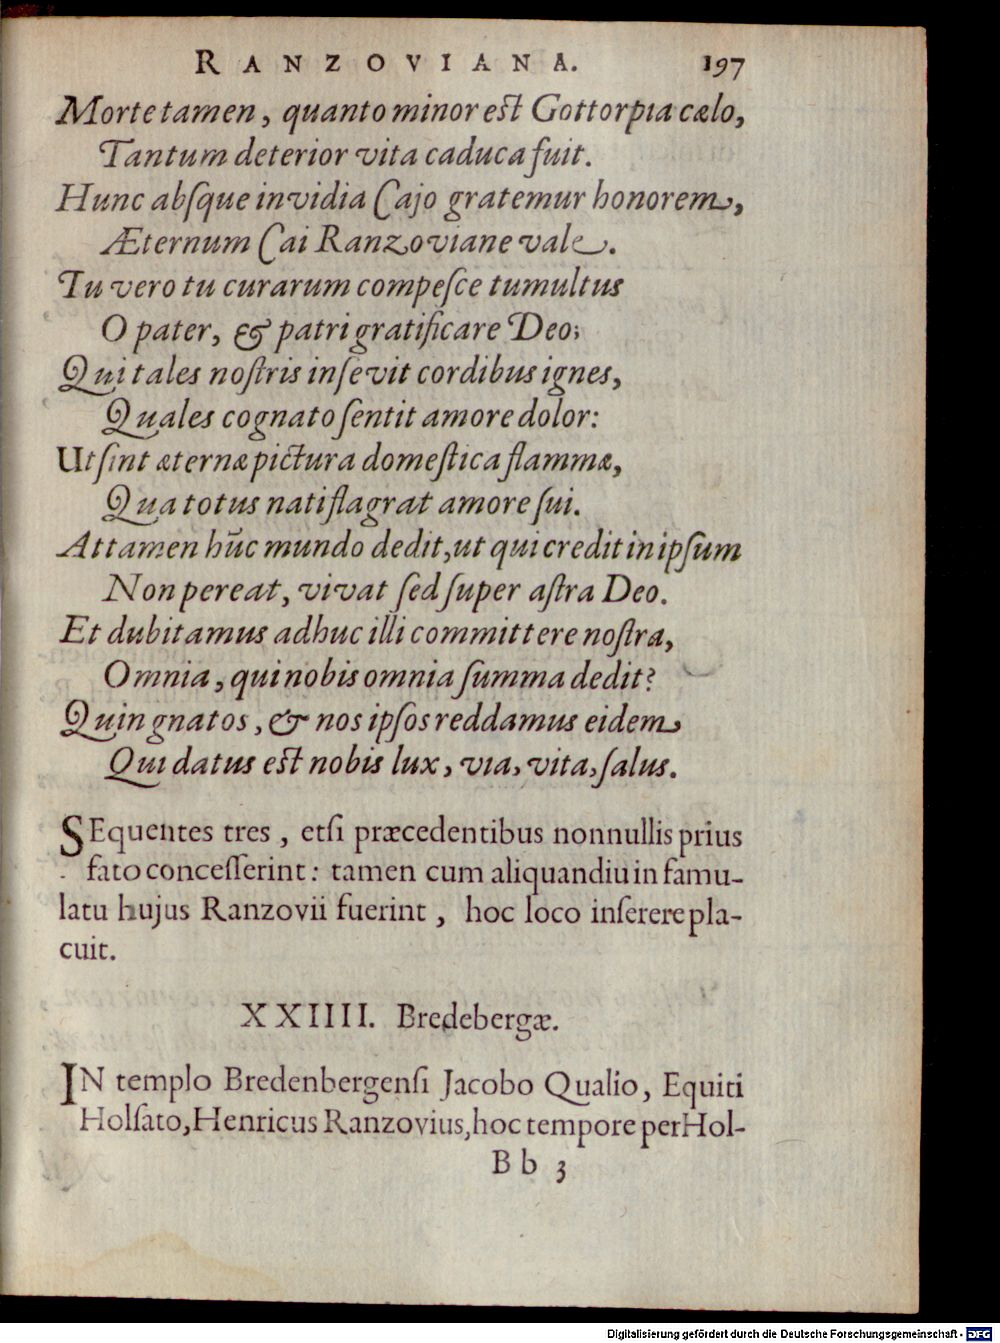 RANZOVIANA. 197
Morte tamen, quanto minor est Gottorpia cælo,
Tantum deterior vita caduca fuit.
Hunc absque invidia Cajo gratemur honorem,
Æternum Cai Ranzoviane vale.
Tu vero tu curarum compesce tumultus
O pater, & patri gratificare Deo;
Qui tales nostris insevit cordibus ignes,
Quales cognato sentit amore dolor:
Ut sint æternæ pictura domestica flammæ,
Qua totus nati flagrat amore sui.
Attamen hūc mundo dedit, ut qui credit in ipsum
Non pereat, vivat sed super astra Deo.
Et dubitamus adhuc illi committere nostra,
Omnia, qui nobis omnia summa dedit?
Quin gnatos, & nos ipsos reddamus eidem
Qui datus est nobis lux, via, vita, salus.
SEquentes tres, etsi præcedentibus nonnullis prius
fato concesserint: tamen cum aliquandiu in famu-
latu hujus Ranzovii fuerint, hoc loco inserere pla-
cuit.
XXIIII. Bredebergæ.
IN templo Bredenbergensi Jacobo Qualio, Equiti
Holsato, Henricus Ranzovius, hoc tempore per Hol-
Bb 3
Digitalisierung gefördert durch die Deutsche Forschungsgemeinschaft - DFG